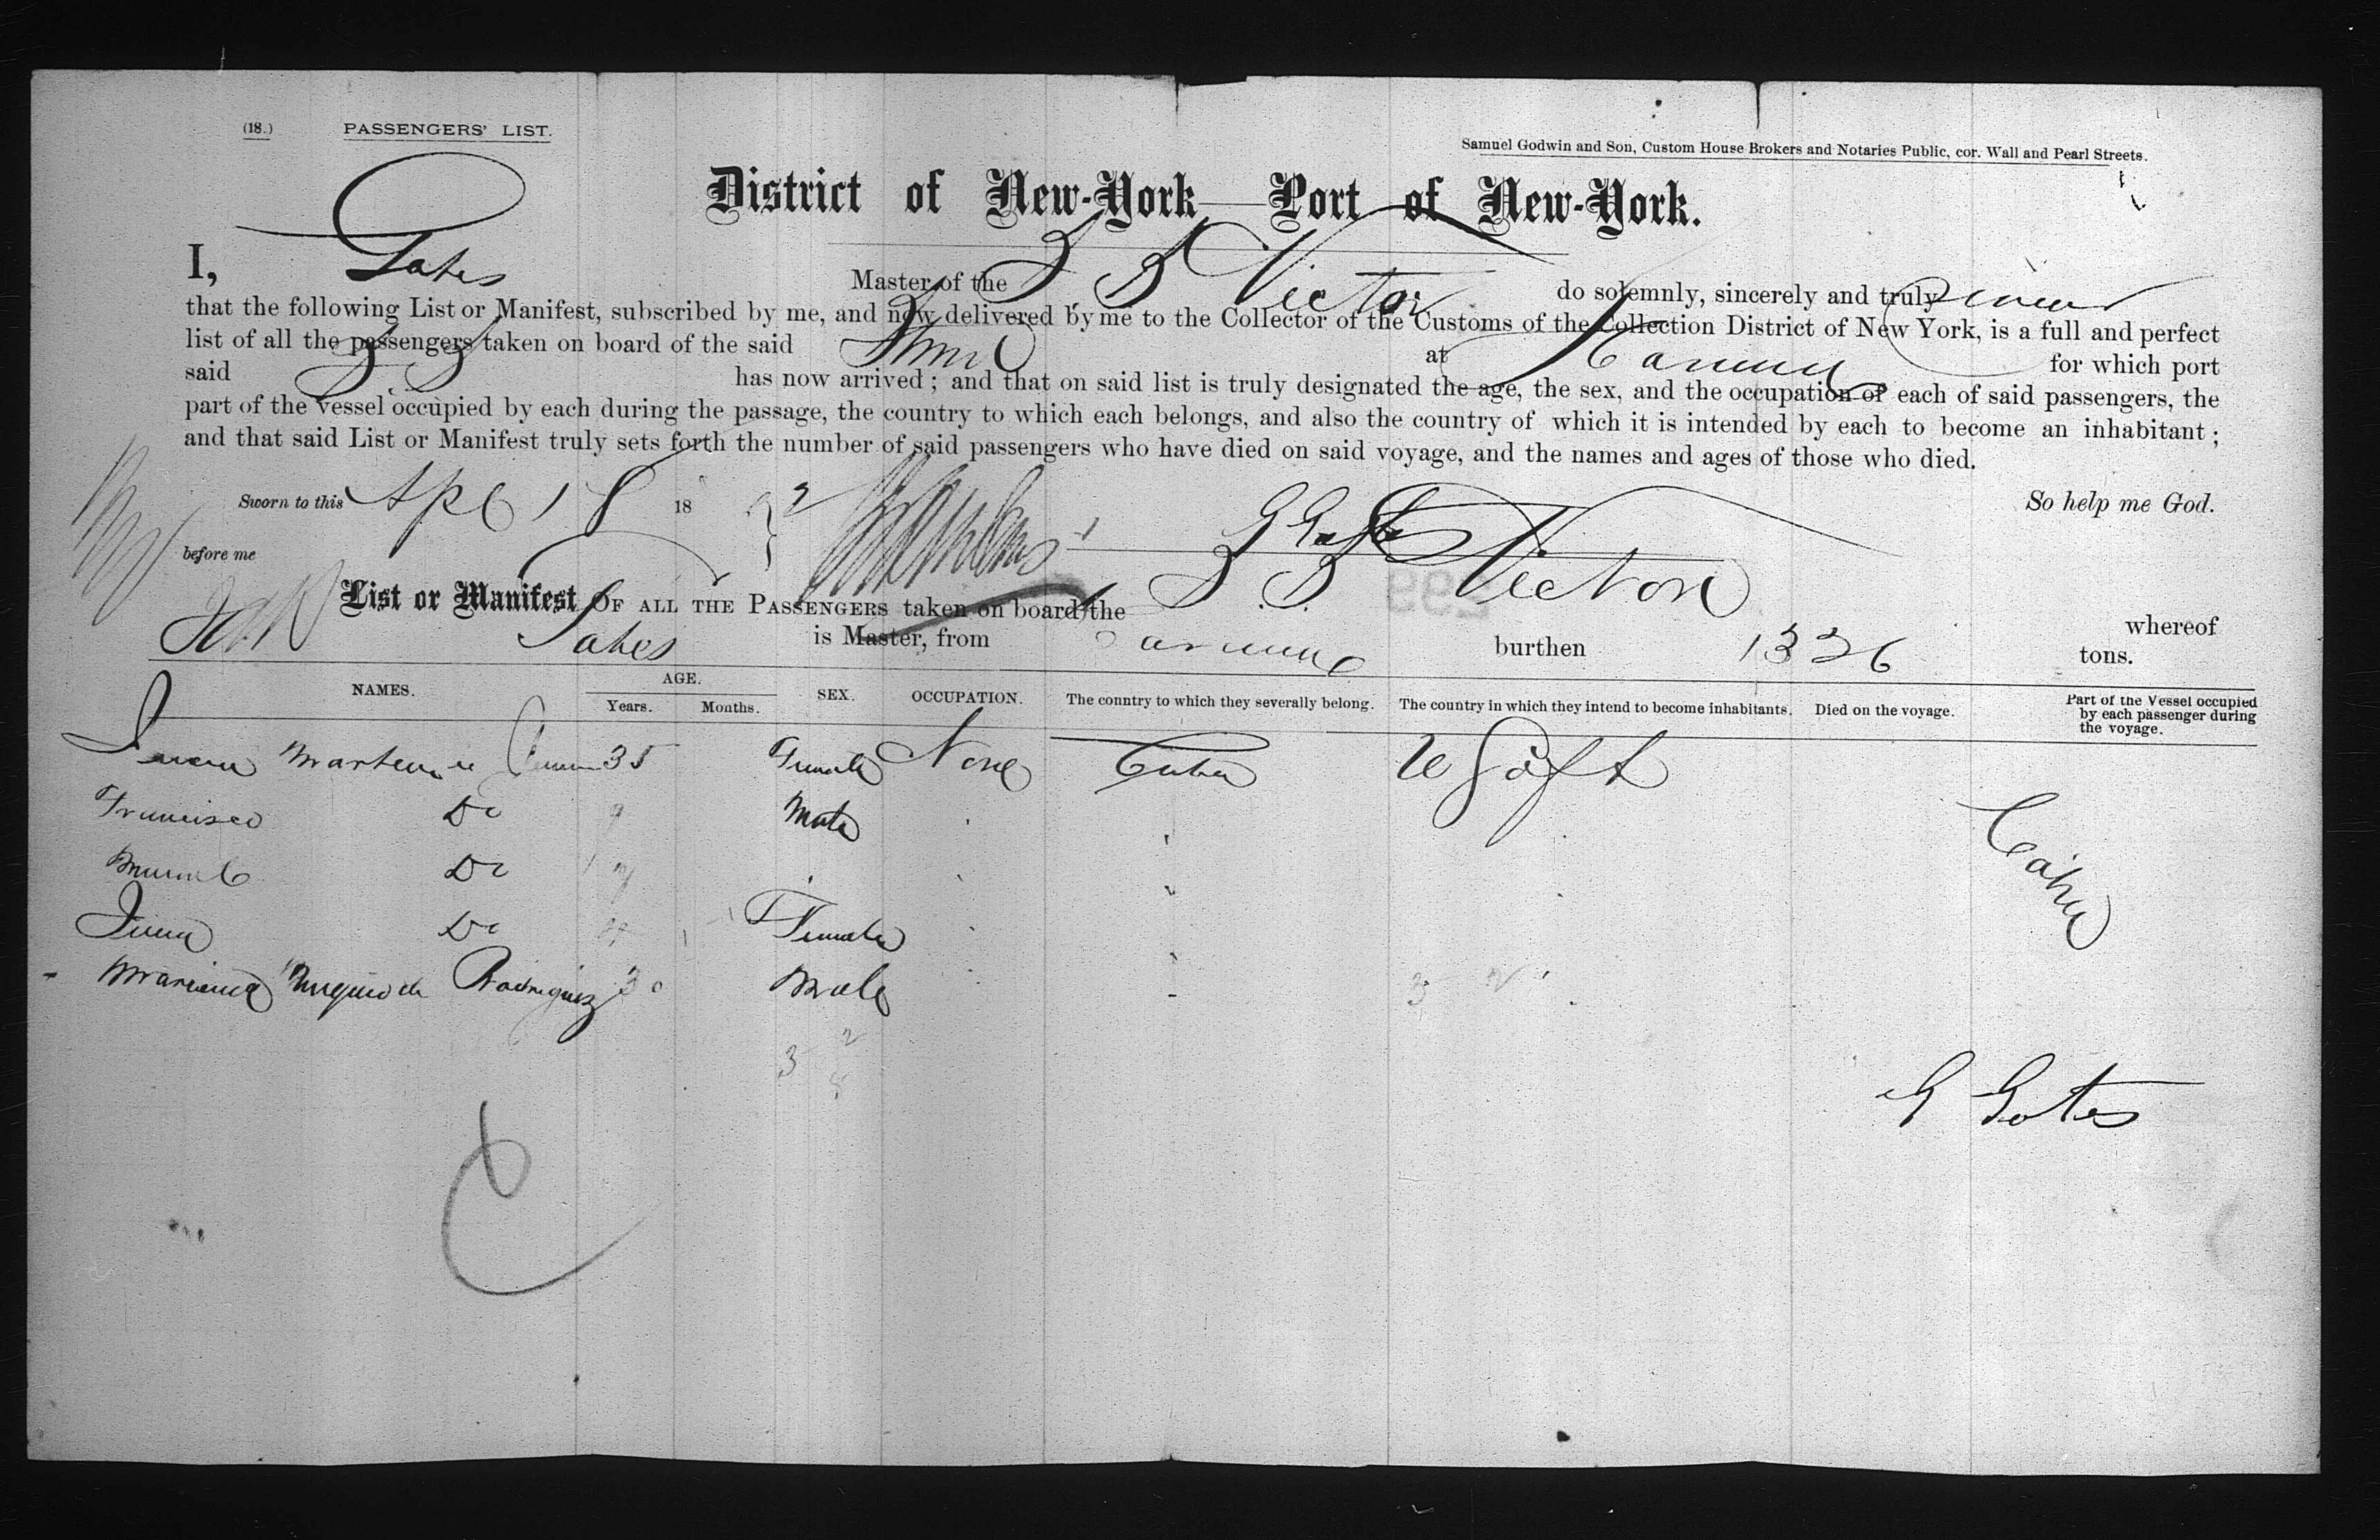 (18.) PASSENGERS' LIST.
Samuel Godwin and Son, Custom House Brokers and Notaries Public, cor. Wall and Pearl Streets.
District of New-York—Port of New-York.
I, Gates Master of the S S Victor do solemnly, sincerely and truly swear
that the following List or Manifest, subscribed by me, and now delivered by me to the Collector of the Customs of the Collection District of New York, is a full and perfect
list of all the passengers taken on board of the said at for which port
said S.S. has now arrived; and that on said list is truly designated the age, the sex, and the occupation of each of said passengers, the
part of the vessel occupied by each during the passage, the country to which each belongs, and also the country of which it is intended by each to become an inhabitant;
and that said List or Manifest truly sets forth the number of said passengers who have died on said voyage, and the names and ages of those who died.
So help me God.
Sworn to this Apl 18 18 92
before me
List or Manifest OF ALL THE PASSENGERS taken on board the S.S. Victor whereof
Gates is Master, from burthen 1326 tons.
NAMES. AGE. Years. Months. SEX. OCCUPATION. The country to which they severally belong. The country in which they intend to become inhabitants. Died on the voyage. Part of the Vessel occupied by each passenger during the voyage.
35 Female None Cuba
Francisco Do 9 Male
Do
Do Female
Rodriguez 30 Male
Cabin
3 2
G Gates